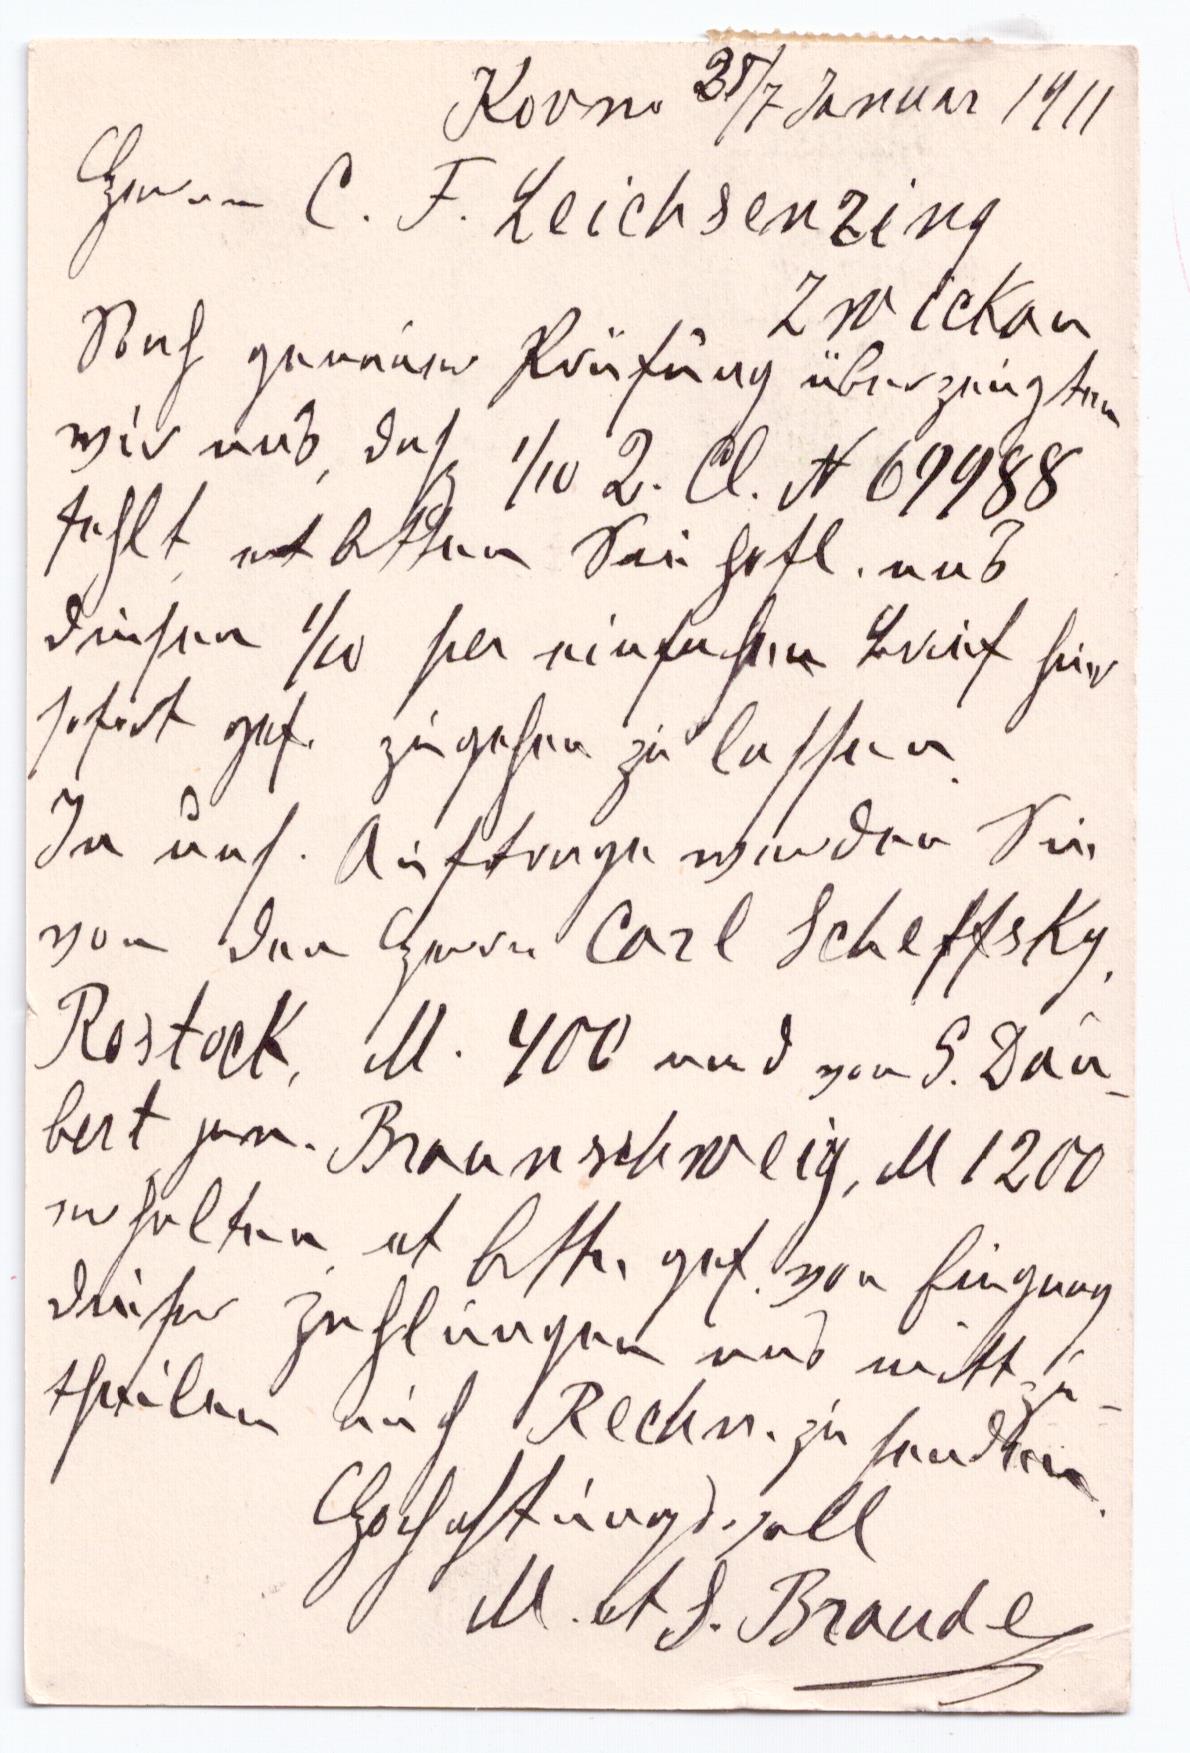 Kovno 25/7 Januar 1911
Herrn C. F. Leichsenzing
Zwickau
Nach genauer Prüfung überzeugten
wir uns, daß 1/10 2. Cl. N 69988
fehlt, et bitten Sie höfl. uns
diesen 1/10 per einfachen Brief hier
sofort gef. zugehen zu lassen.
In uns. Auftrage werden Sie
von den Herrn Carl Scheffsky,
Rostock, M. 400 und von S. Dau-
bert jun. Braunschweig, M 1200
erhalten, et bitte, gef. von Eingang
dieser Zahlungen uns mitzu-
theilen auch Rechn. zu senden.
Hochachtungsvoll
M. et S. Braude